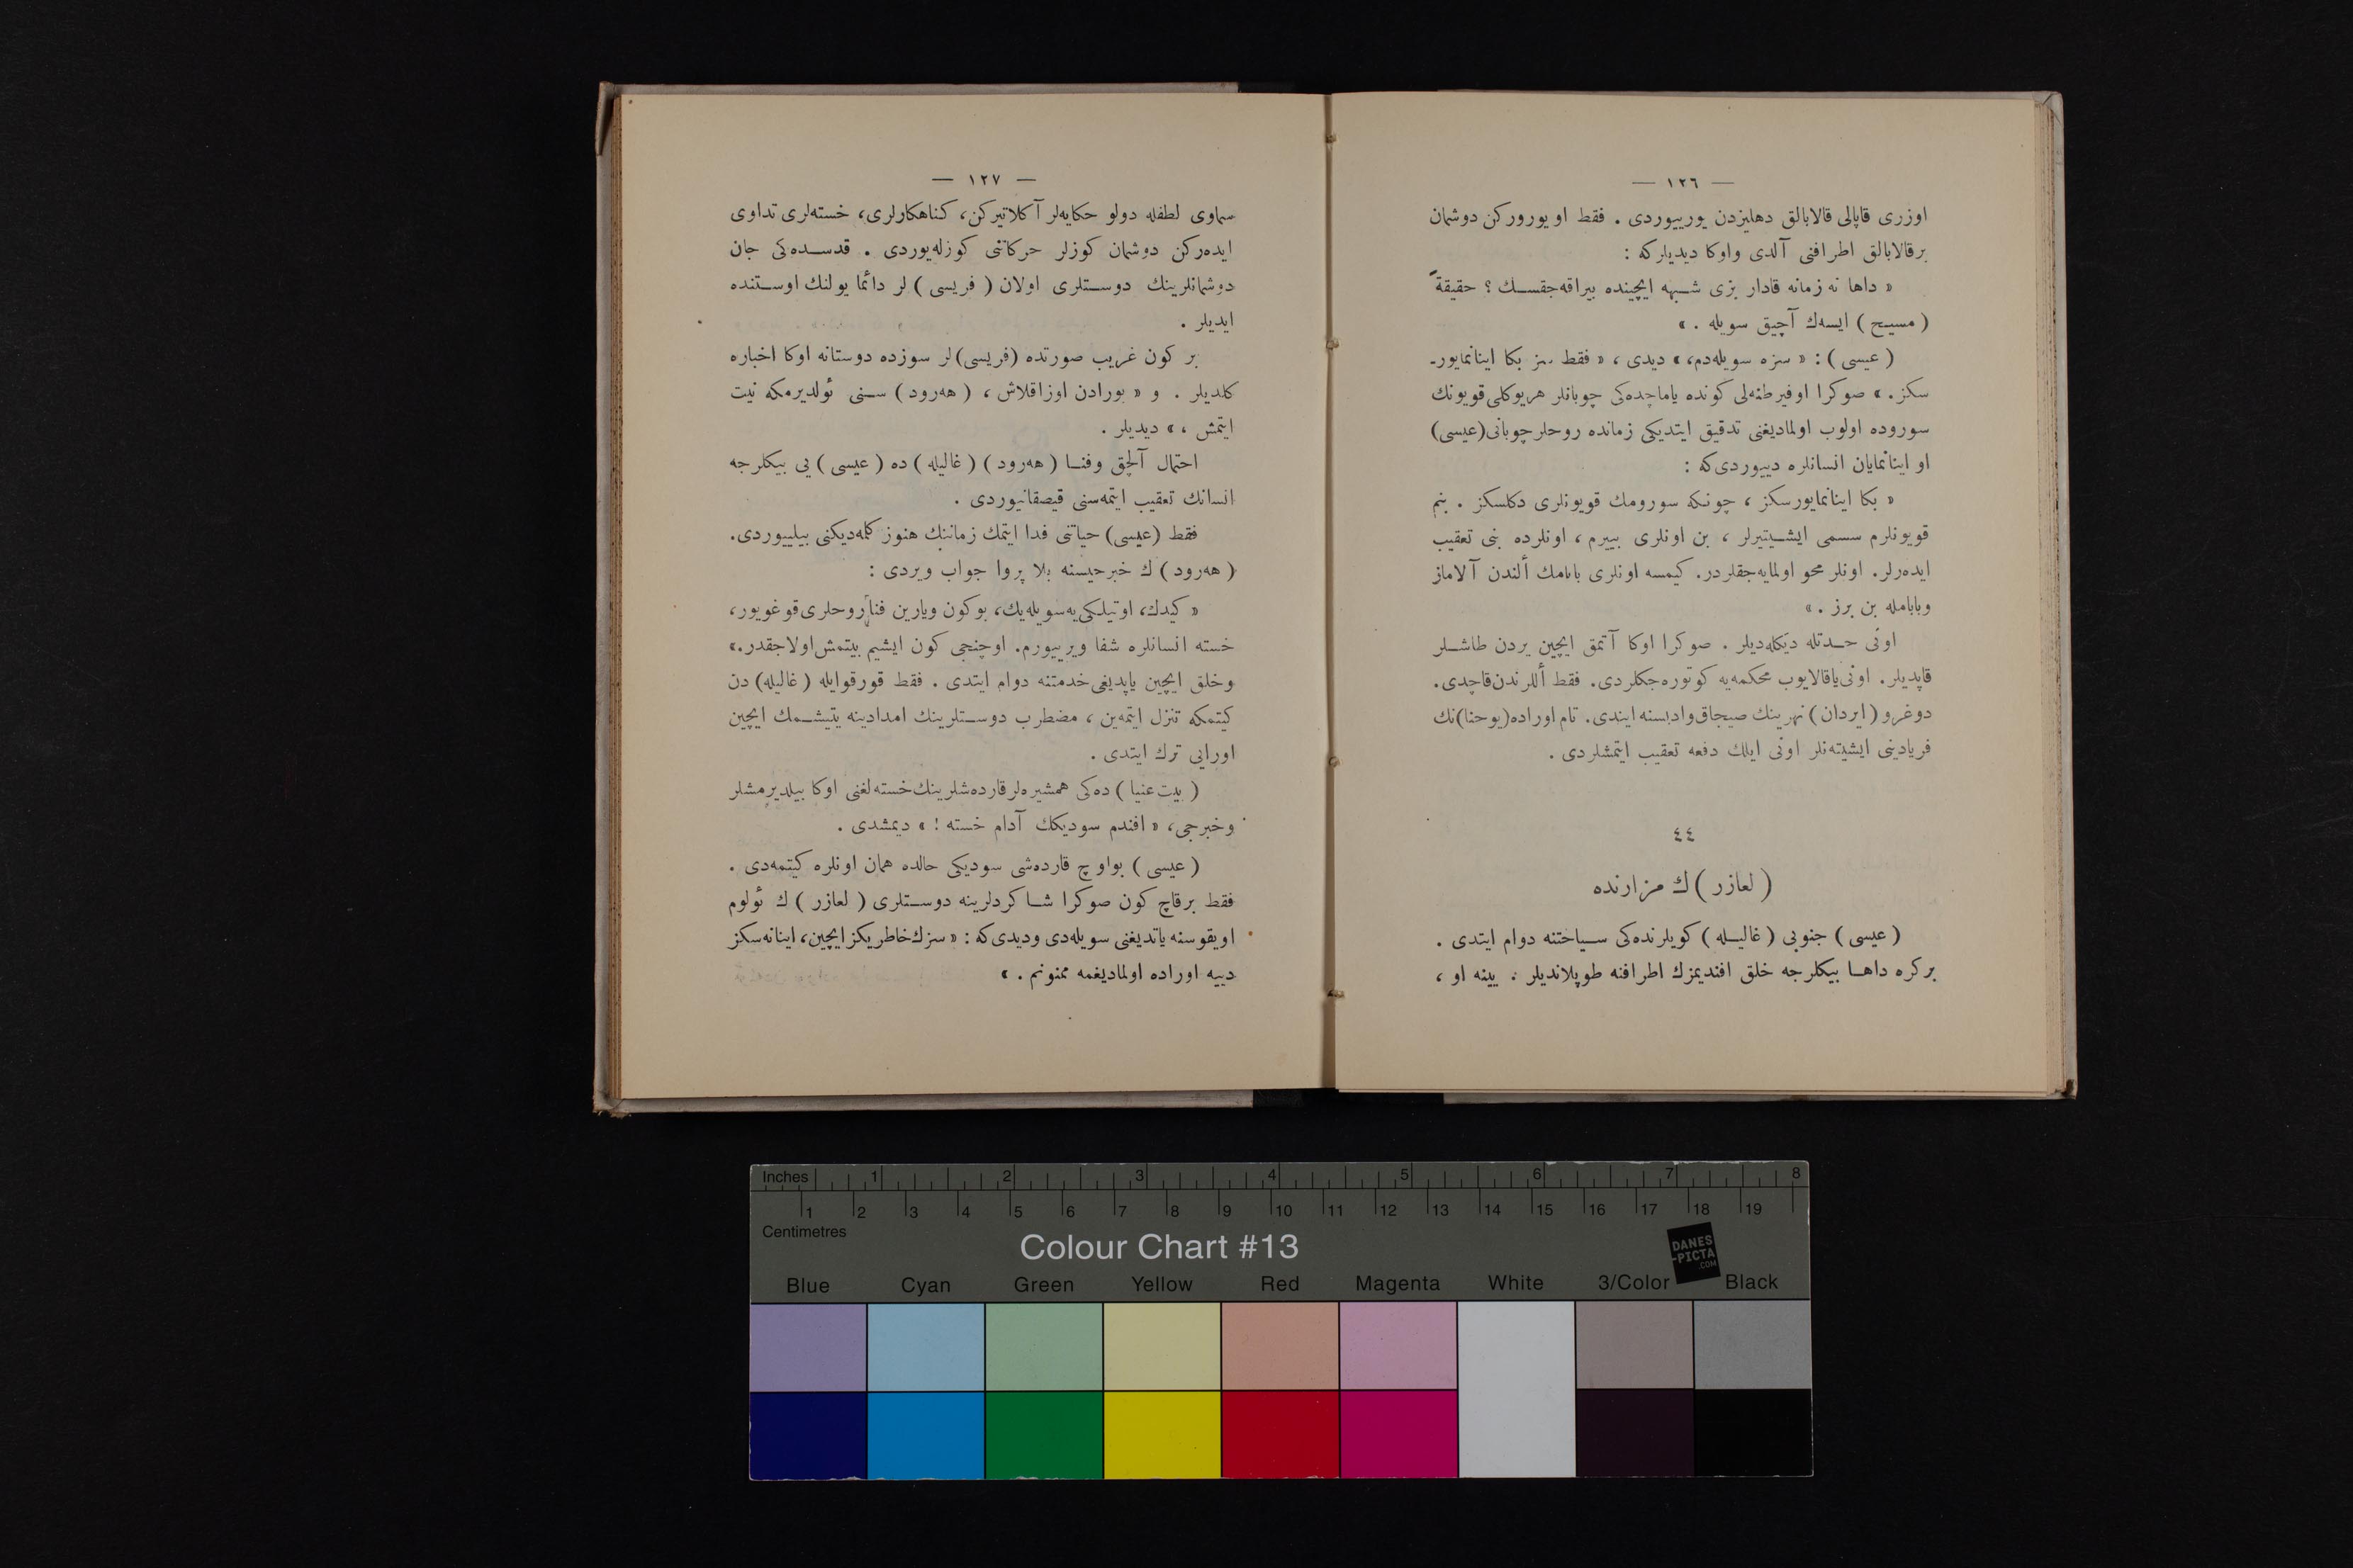 — ١٢٦ —
اوزری قاپالی قالابالق دهلیزدن یورییوردی . فقط او یورورکن دوشمان
برقالابالق اطرافنی آلدی واوکا دیدیلرکه :
« داها نه زمانه قادار بزی شبهه ایچینده بیراقه‌جقسك ؟ حقیقةً
( مسیح ) ایسه‌ك آچیق سویله . »
( عیسی ) : « سزه سویله‌دم، » دیدی ، « فقط سز بکا اینانمایور-
سکز. » صوکرا اوفیرطنه‌لی کونده یاماجده‌کی چوبانلر هریوکلی قویونك
سوروده اولوب اولمادیغنی تدقیق ایتدیکی زمانده روحلرچوبانی(عیسی)
او اینانمایان انسانلره دییوردی‌که :
« بکا اینانمایورسکز ، چونکه سورومك قویونلری دکلسکز . بنم
قویونلرم سسمی ایشیتیرلر ، بن اونلری بیلیرم ، اونلرده بنی تعقیب
ایده‌رلر. اونلر محو اولمایه‌جقلردر. کیمسه اونلری بابامك ألندن آلاماز
وبابامله بن برز . »
اونی حدتله دیکله‌دیلر . صوکرا اوکا آتمق ایچین یردن طاشلر
قاپدیلر. اونی‌یاقالایوب محکمه‌یه کوتوره‌جکلردی. فقط أللرندن‌قاچدی.
دوغرو ( ایردان ) نهرینك صیجاق‌وادیسنه ایندی. تام اوراده(یوحنا)نك
فریادینی ایشیته‌نلر اونی ایلك دفعه تعقیب ایتمشلردی .
٤٤
( لعازر ) ك مزارنده
( عیسی ) جنوبی ( غالیله ) کویلرنده‌کی سیاحتنه دوام ایتدی .
برکره داها بیکلرجه خلق افندیمزك اطرافنه طوپلاندیلر . یینه او ،
— ١٢٧ —
سماوی لطفله دولو حکایه‌لر آکلاتیرکن، کناهکارلری، خسته‌لری تداوی
ایده‌رکن دوشمان کوزلر حرکاتنی کوزله‌یوردی . قدسده‌کی جان
دوشمانلرینك دوستلری اولان ( فریسی ) لر دائما یولنك اوستنده
ایدیلر .
بر کون غریب صورتده (فریسی) لر سوزده دوستانه اوکا اخباره
کلدیلر . و « بورادن اوزاقلاش ، ( هه‌رود ) سنی ئولدیرمکه نیت
ایتمش ، » دیدیلر .
احتمال آلچق وفنا ( هه‌رود ) ( غالیله ) ده ( عیسی ) یی بیکلرجه
انسانك تعقیب ایتمه‌سنی قیصقانیوردی .
فقط (عیسی) حیاتنی فدا ایتمك زماننك هنوز کلمه‌دیکنی بیلییوردی.
( هه‌رود ) ك خبرجیسنه بلا پروا جواب ویردی :
« کیدك، اوتیلکی‌یه‌سویله‌یك، بوکون ویارین فنا روحلری‌قوغویور،
خسته انسانلره شفا ویرییورم. اوچنجی کون ایشیم بیتمش‌اولاجقدر.»
وخلق ایچین یاپدیغی‌خدمتنه دوام ایتدی . فقط قورقوایله ( غالیله) دن
کیتمکه تنزل ایتمه‌ین ، مضطرب دوستلرینك امدادینه یتیشمك ایچین
اورایی ترك ایتدی .
( بیت عنیا ) ده‌کی همشیره‌لر قارده‌شلرینك‌خسته‌لغنی اوکا بیلدیرمشلر
وخبرجی، « افندم سودیکك آدام خسته ! » دیمشدی .
( عیسی ) بواوچ قارده‌شی سودیکی حالده همان اونلره کیتمه‌دی .
فقط برقاچ کون صوکرا شاکردلرینه دوستلری ( لعازر ) ك ئولوم
اویقوسنه یاتدیغنی سویله‌دی ودیدی‌که : « سزك‌خاطریکزایچین، اینانه‌سکز
دییه اوراده اولمادیغمه ممنونم . »
Inches 1 2 3 4 5 6 7 8
1 2 3 4 5 6 7 8 9 10 11 12 13 14 15 16 17 18 19
Centimetres
Colour Chart #13
DANES
-PICTA
.COM
Blue Cyan Green Yellow Red Magenta White 3/Color Black